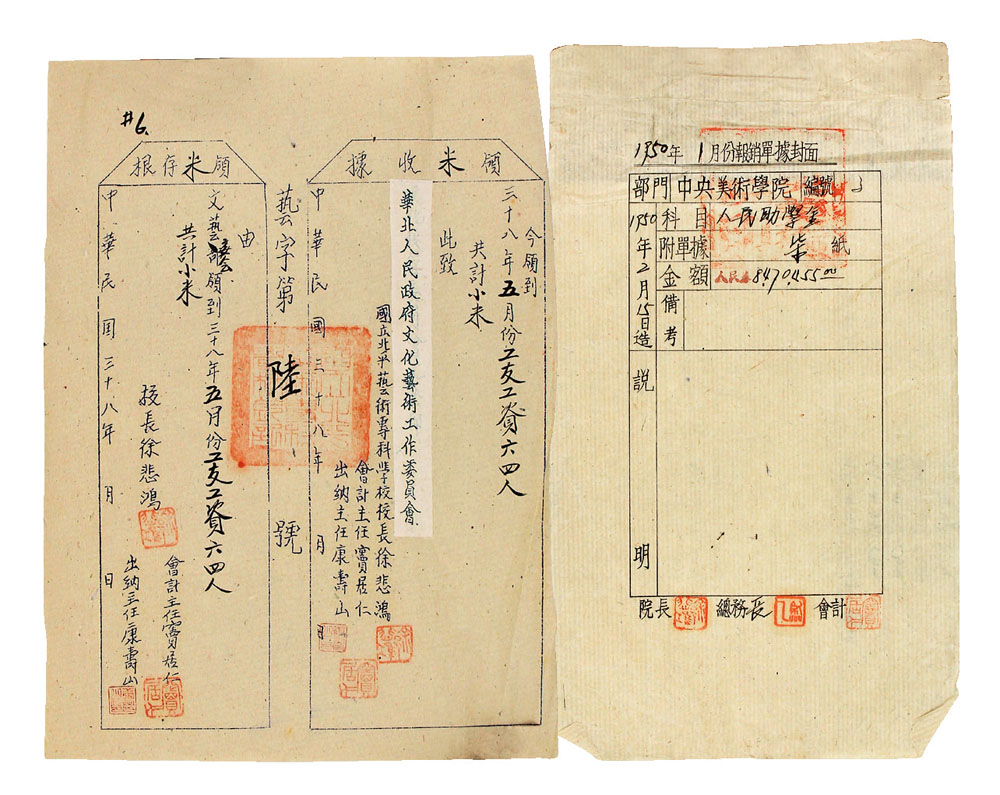 #6.
領米收據
今領到
三十八年五月份工友工資六四人
共計小米
此致
華北人民政府文化藝術工作委員會
國立北平藝術專科學校校長徐悲鴻
會計主任竇居仁
出納主任康壽山
中華民國三十八年 月 日
藝字第陸號
領米存根
由
領到三十八年五月份工友工資六四人
共計小米
校長徐悲鴻
會計主任竇居仁
出納主任康壽山
中華民国三十八年 月 日
1950年 1月份報銷單據封面
部門 中央美術學院 編號 3
科目 人民助學金
附單據 柒 紙
金額 人民券8,470,455.00
備考
1950年2月15日造
説明
院長 總務長 會計